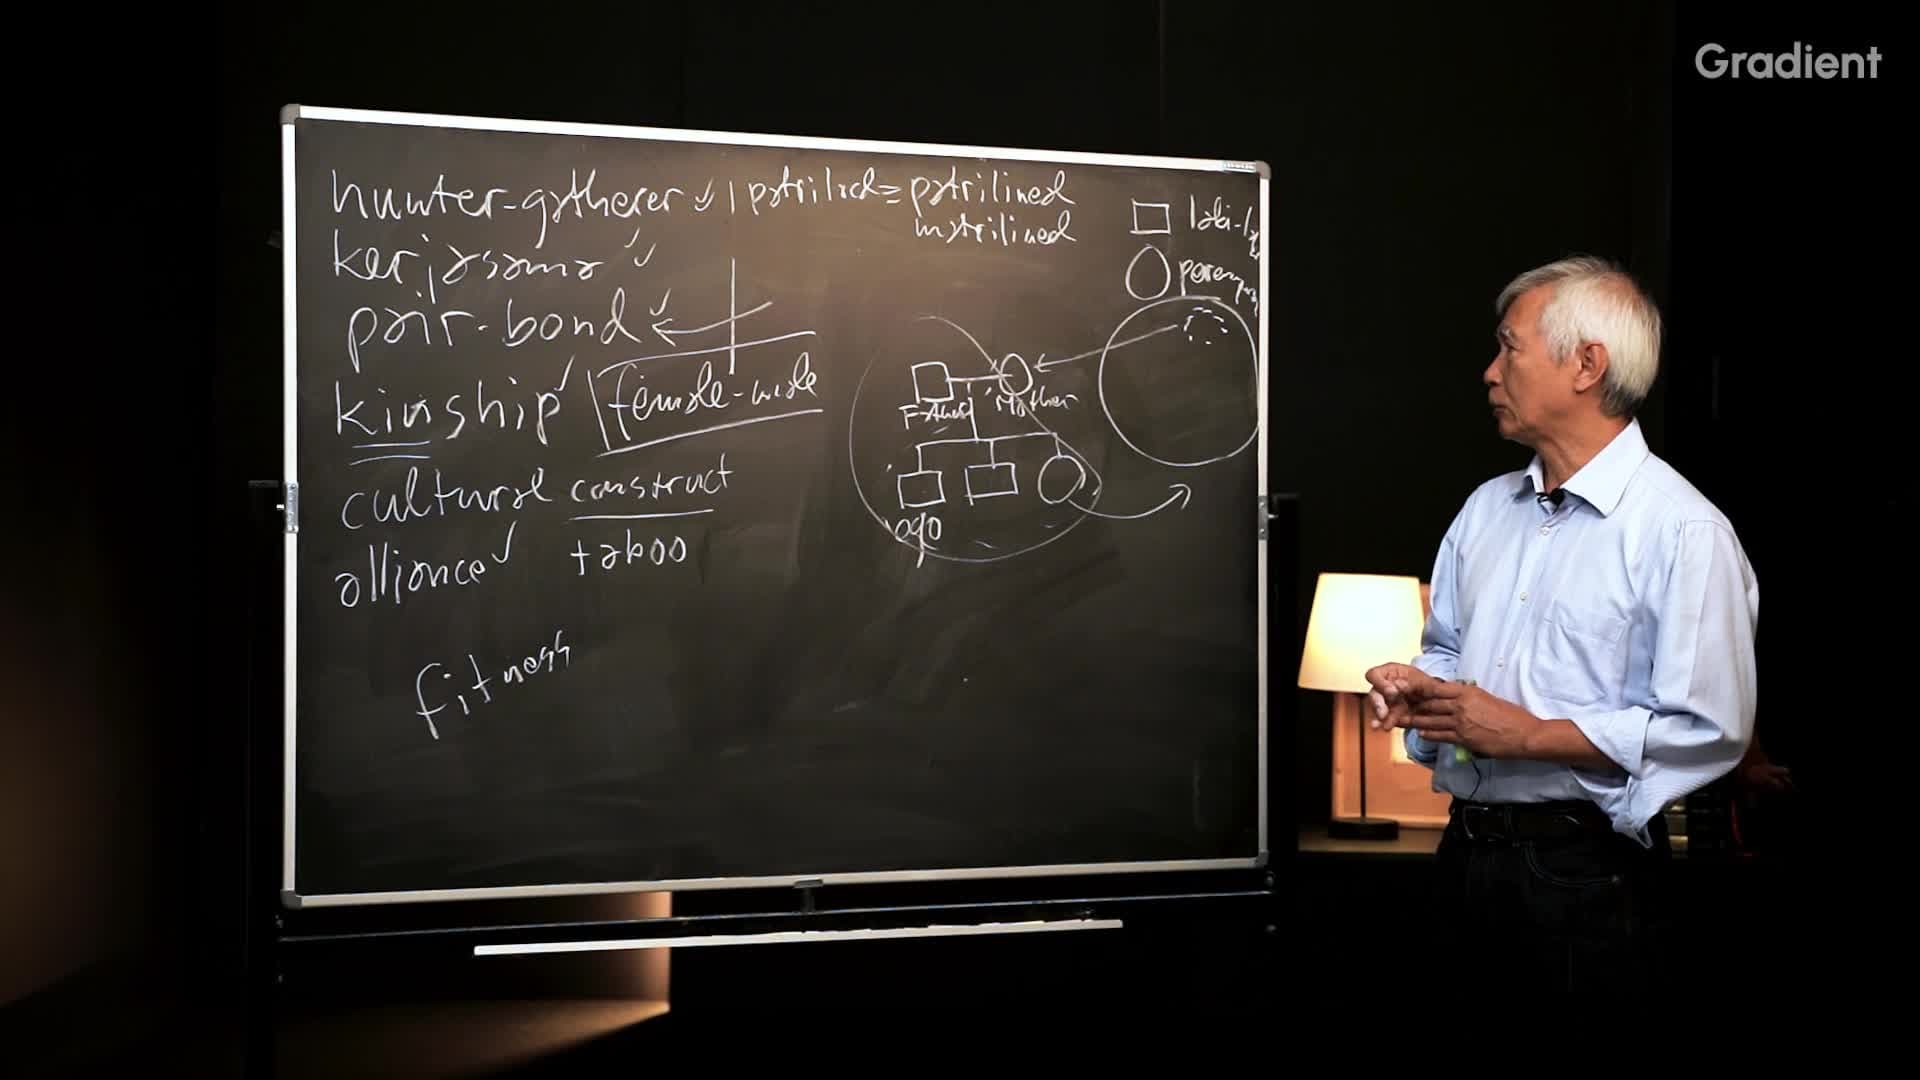 Gradient
hunter-gatherer patrilocal = patrilineal
matrilineal
kerjasama
pair-bond
kinship female-male
cultural construct
taboo
alliance
fitness
laki-la
perempuan
Father Mother
ego